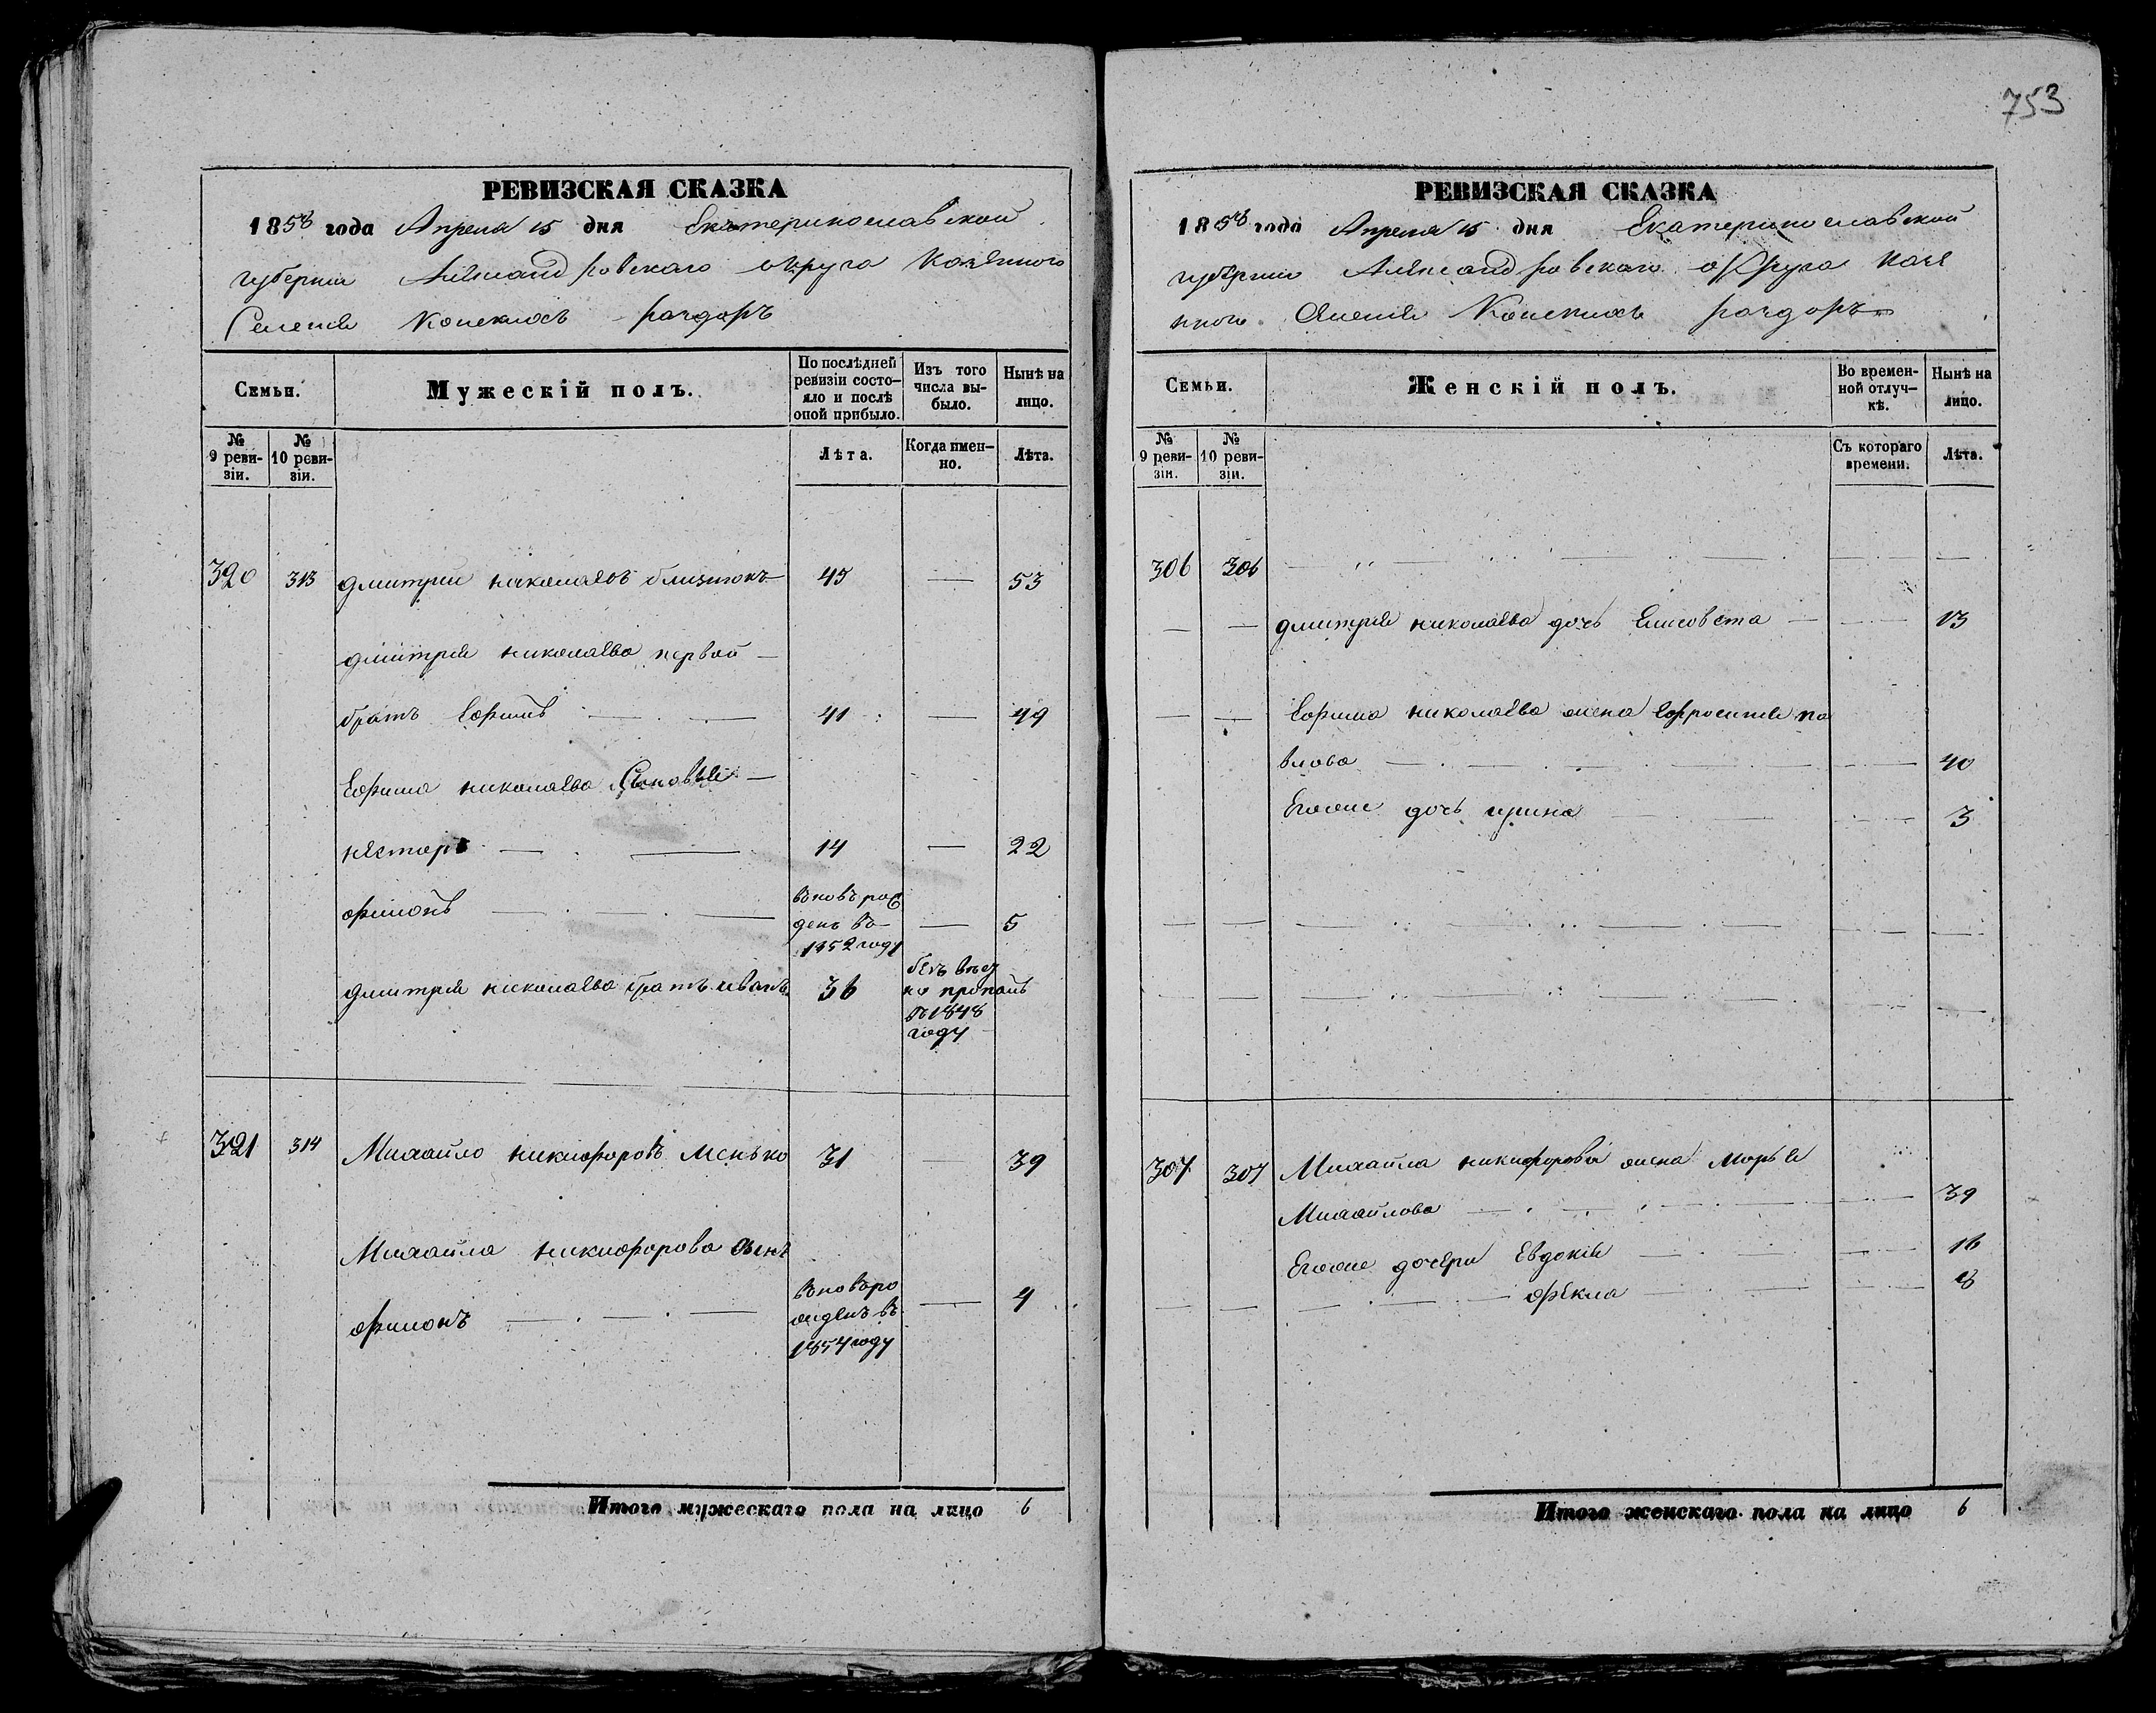 753
РЕВИЗСКАЯ СКАЗКА
1858 года Апреля 15 дня Екатеринославской
губернии Александровскаго округа казенного
Селения Конскихъ раздоръ
Семьи.
Мужескій полъ.
По послѣдней ревизіи состо-
яло и послѣ оной прибыло.
Изъ того числа вы-
было.
Нынѣ на лицо.
№ 9 реви-
зіи.
№ 10 реви-
зіи.
Лѣта.
Когда имен-
но.
Лѣта.
320 313 дмитрий николаевъ близнюкъ 45 — 53
дмитрия николаева первой
братъ Ефимъ 41 — 49
Ефима николаева Сыновья
несторъ 14 — 22
филонъ вновь рож
денъ въ
1852 году — 5
дмитрия николаева братъ иванъ 36 безъ вѣс
но пропалъ
въ 1848
году
321 314 Михайло никифоровъ Менько 31 — 39
Михайла никифорова сынъ
филонъ вновь ро
жденъ въ
1854 году — 4
Итого мужескаго пола на лицо 6
РЕВИЗСКАЯ СКАЗКА
1858 года Апреля 15 дня Екатеринославской
губернии Александровскаго округа казе
нного Селения Конскихъ раздоръ
Семьи.
Женскій полъ.
Во времен-
ной отлуч-
кѣ.
Нынѣ на лицо.
№ 9 реви-
зіи.
№ 10 реви-
зіи.
Съ котораго времени.
Лѣта.
306 306
дмитрия николаева дочь Елисовета 13
Ефима николаева жена Ефросиния па
влова 40
Егоже дочь ирина 3
307 307 Михайла никифорова жена марья
Михайлова 39
Егоже дочери Евдокия 16
фекла 8
Итого женскаго пола на лицо 6